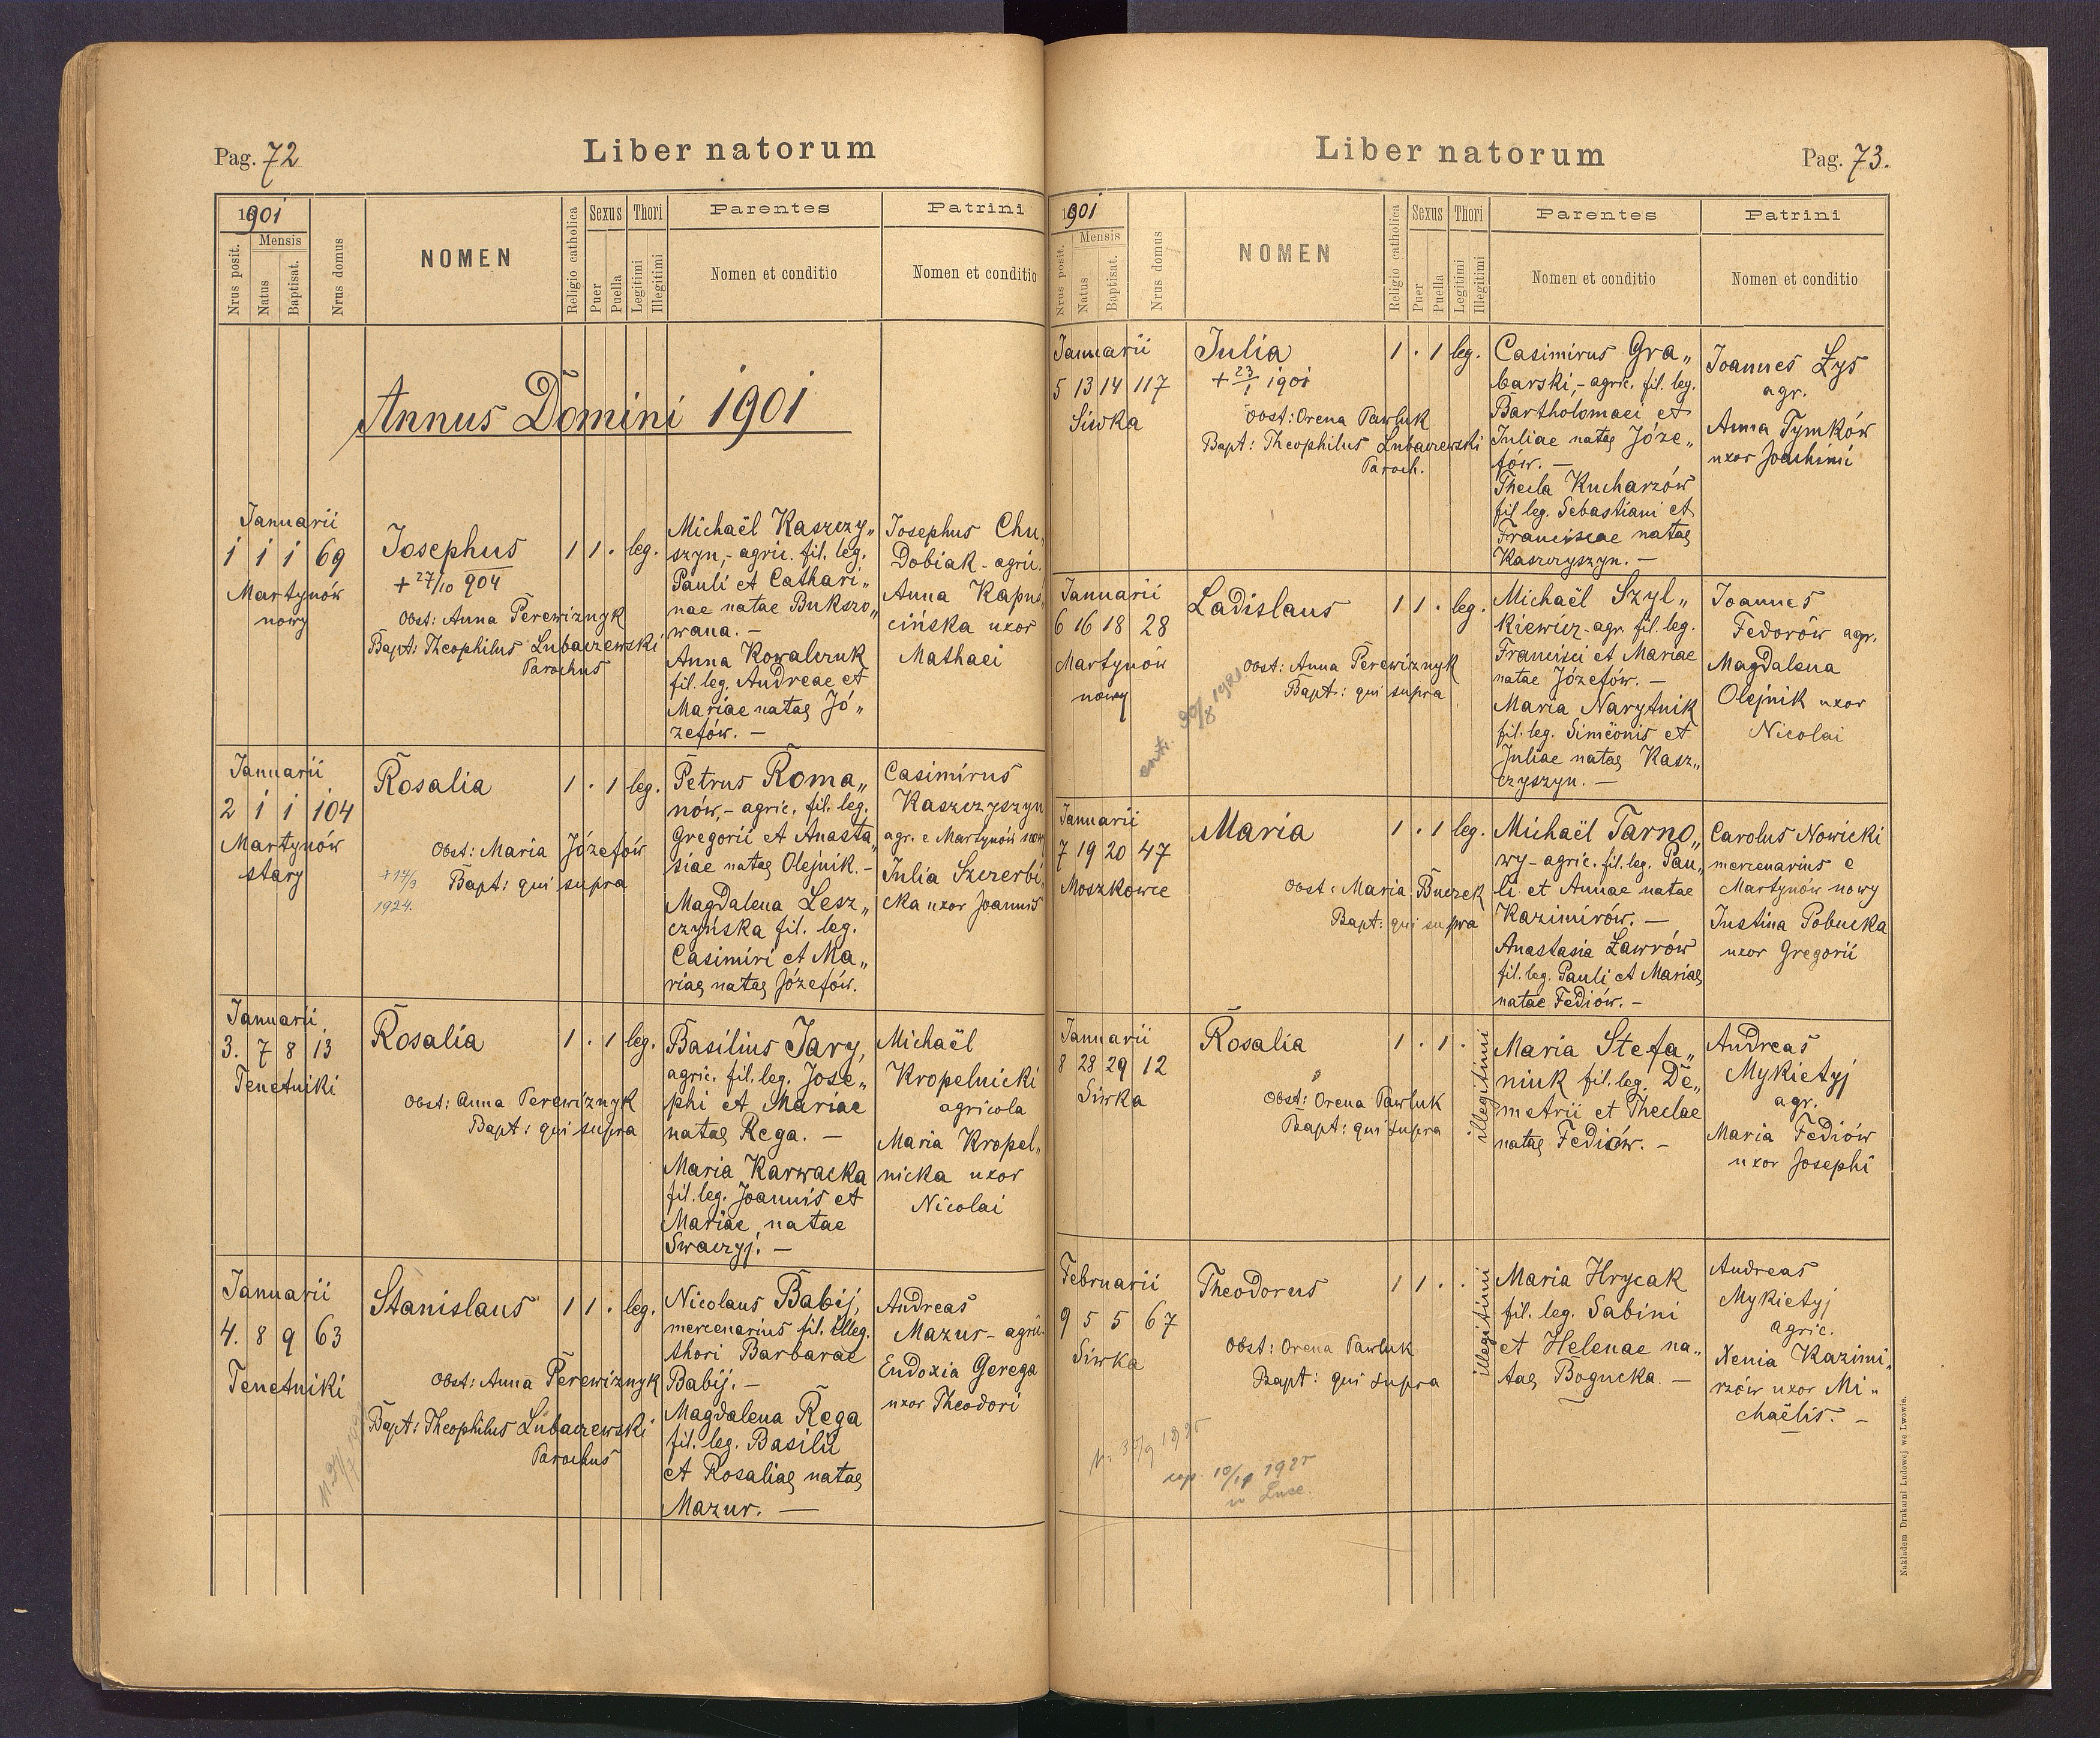 Pag. 72
Liber natorum
1901
Nrus posit.
Mensis
Natus
Baptisat.
Nrus domus
NOMEN
Religio catholica
Sexus
Puer
Puella
Thori
Legitimi
Illegitimi
Parentes
Nomen et conditio
Patrini
Nomen et conditio
Annus Domini 1901
Januarii
1 1 1 69
Martynów
nowy
Josephus
+ 27/10 904
Obst: Anna Perewiznyk
Bapt: Theophilus Lubaczewski
Parochus
1 1 . leg.
Michaël Kaszczy„
szyn,- agric. fil. leg.
Pauli et Cathari„
nae natae Bukszo„
wana. –
Anna Kowalczuk
fil. leg. Andreae et
Mariae natae Jó„
zefów. –
Josephus Chu„
Dobiak - agric.
Anna Kapus„
cińska uxor
Mathaei
Januarii
2 1 1 104
Martynów
stary
Rosalia
Obst: Maria Józefów
Bapt: qui supra
+17/3
1924.
1 . 1 leg.
Petrus Roma„
nów,- agric. fil. leg.
Gregorii et Anasta„
siae natae Olejnik. –
Magdalena Lesz„
czyńska fil. leg.
Casimiri et Ma„
riae natae Józefów.
Casimirus
Kaszczyszyn
agr. e Martynów now
Julia Szczerbi„
cka uxor Joannis
Januarii
3. 7 8 13
Tenetniki
Rosalia
Obst: Anna Perewiznyk
Bapt: qui supra
1 . 1 leg.
Basilius Jary,
agric. fil. leg. Jose„
phi et Mariae
natae Rega. –
Maria Karwacka
fil. leg. Joannis et
Mariae natae
Swaczyj. –
Michaël
Kropelnicki
agricola
Maria Kropel„
nicka uxor
Nicolai
Januarii
4. 8 9 63
Tenetniki
Stanislaus
Obst: Anna Perewiznyk
Bapt: Theophilus Lubaczewski
Parochus
1 1 . leg.
Nicolaus Babij,
mercenarius fil. illeg.
thori Barbarae
Babij. –
Magdalena Rega
fil. leg. Basilii
et Rosaliae natae
Mazur. –
Andreas
Mazur - agric.
Eudoxia Gerega
uxor Theodori
Liber natorum
Pag. 73.
1901
Nrus posit.
Mensis
Natus
Baptisat.
Nrus domus
NOMEN
Religio catholica
Sexus
Puer
Puella
Thori
Legitimi
Illegitimi
Parentes
Nomen et conditio
Patrini
Nomen et conditio
Januarii
5 13 14 117
Siwka
Julia
+ 23/1 1901
Obst: Orena Pawluk
Bapt: Theophilus Lubaczewski
Paroch.
1 . 1 leg.
Casimirus Gra„
barski,- agric. fil. leg.
Bartholomaei et
Juliae natae Józe„
fów. –
Thecla Kucharzów
fil leg. Sebastiani et
Franciscae natae
Kaszczyszyn. –
Joannes Łys
agr.
Anna Tymków
uxor Joachimi
Januarii
6 16 18 28
Martynów
nowy
Ladislaus
Obst: Anna Perewiznyk
Bapt: qui supra
1 1 . leg.
Michaël Szyl„
kiewicz - agr. fil. leg.
Francisci et Mariae
natae Józefów. –
Maria Narytnik
fil. leg. Simeonis et
Juliae natae Kasz„
czyszyn. –
Joannes
Fedorów agr.
Magdalena
Olejnik uxor
Nicolai
Januarii
7 19 20 47
Moszkowce
Maria
Obst: Maria Buczek
Bapt: qui supra
1 . 1 leg.
Michaël Tarno„
wy - agric. fil. leg. Pau„
li et Annae natae
Kazimirów. –
Anastasia Ławrów
fil. leg. Pauli et Mariae
natae Fediów. –
Carolus Nowicki
mercenarius e
Martynów nowy
Justina Pobucka
uxor Gregorii
Januarii
8 28 29 12
Siwka
Rosalia
Obst: Orena Pawluk
Bapt: qui supra
1 . 1 .
illegitimi
Maria Stefa„
niuk fil. leg. De„
metrii et Theclae
natae Fediów. –
Andreas
Mykietyj
agr.
Maria Fediów
uxor Josephi
Februarii
9 5 5 67
Siwka
Theodorus
Obst: Orena Pawluk
Bapt: qui supra
cop. 1925
1 1 . .
illegitimi
Maria Hrycak
fil. leg. Sabini
et Helenae na„
tae Bogucka. –
Andreas
Mykietyj
agric.
Xenia Kazimi„
rzów uxor Mi„
chaëlis. –
Nakładem Drukarni Ludowej we Lwowie.